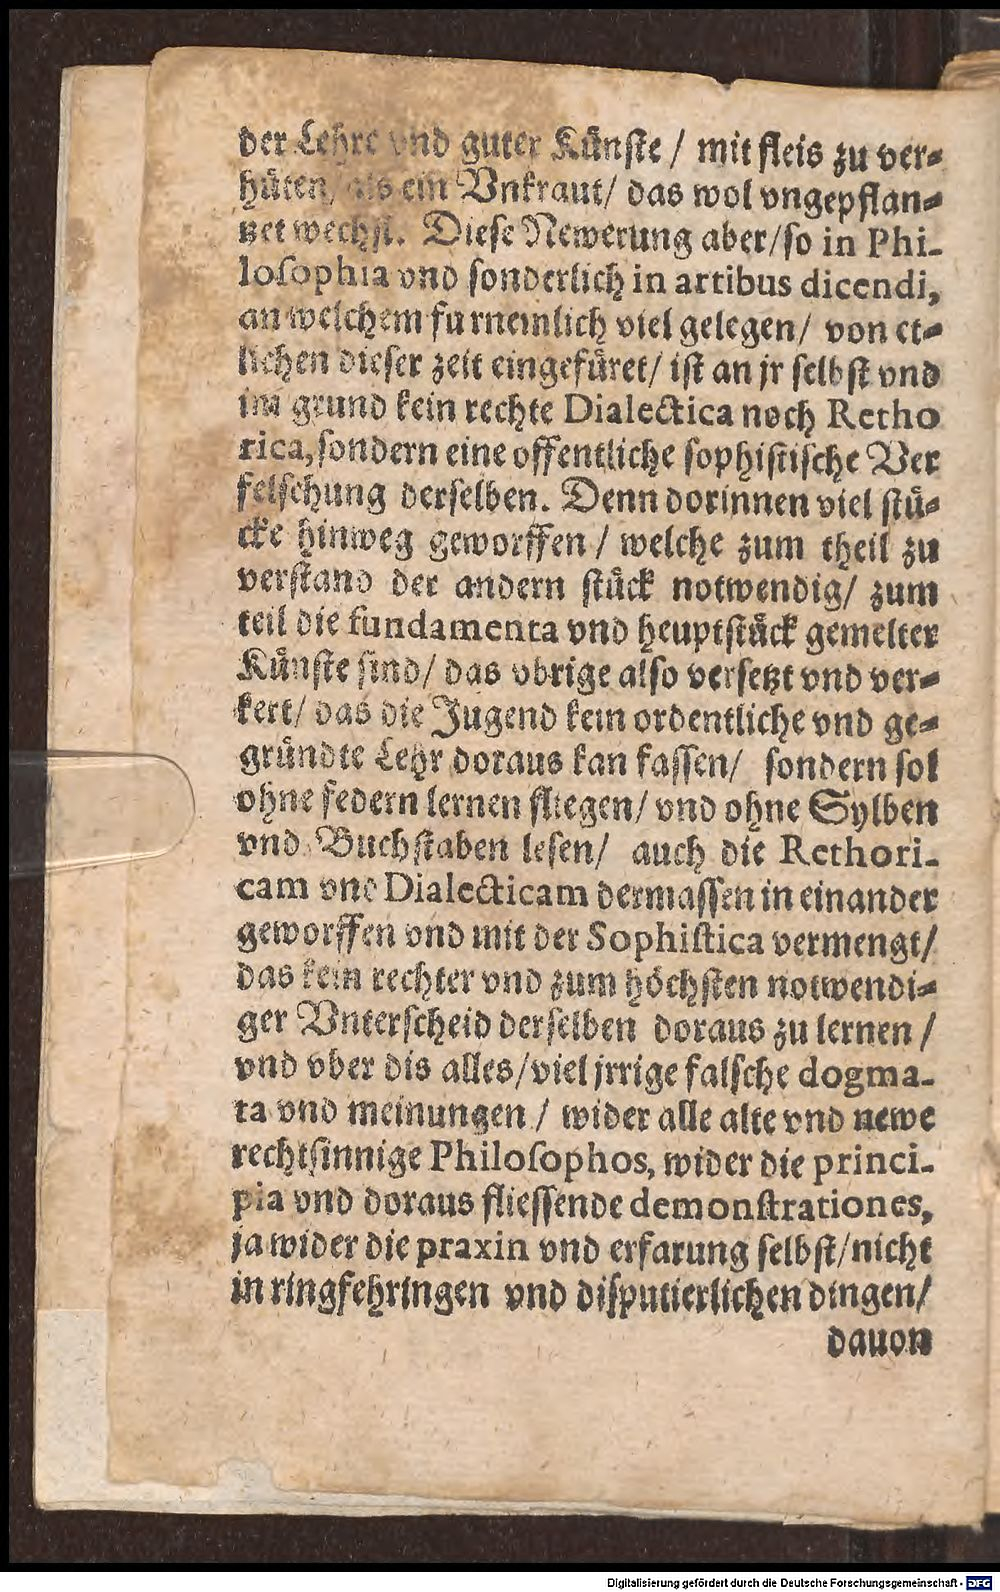 der Lehre vnd guter Künste / mit fleis zu ver-
hüten/ als ein Vnkraut/ das wol vngepflan-
tzet wechst. Diese Newerung aber/so in Phi-
losophia vnd sonderlich in artibus dicendi,
an welchem furnemlich viel gelegen/ von et-
lichen dieser zeit eingefüret/ ist an jr selbst vnd
im grund kein rechte Dialectica noch Retho
rica, sondern eine offentliche sophistische Ver
felschung derselben. Denn dorinnen viel stü-
cke hinweg geworffen / welche zum theil zu
verstand der andern stück notwendig/ zum
teil die fundamenta vnd heuptstück gemelter
Künste sind/ das vbrige also versetzt vnd ver-
kert/ das die Jugend kein ordentliche vnd ge-
gründte Lehr doraus kan fassen/ sondern sol
ohne federn lernen fliegen/ vnd ohne Sylben
vnd Buchstaben lesen/ auch die Rethori-
cam vnd Dialecticam dermassen in einander
geworffen vnd mit der Sophistica vermengt/
das kein rechter vnd zum höchsten notwendi-
ger Vnterscheid derselben doraus zu lernen /
vnd vber dis alles/viel jrrige falsche dogma-
ta vnd meinungen / wider alle alte vnd newe
rechtsinnige Philosophos, wider die princi-
pia vnd doraus fliessende demonstrationes,
ja wider die praxin vnd erfarung selbst/nicht
in ringfehringen vnd disputierlichen dingen/
dauon
Digitalisierung gefördert durch die Deutsche Forschungsgemeinschaft - DFG